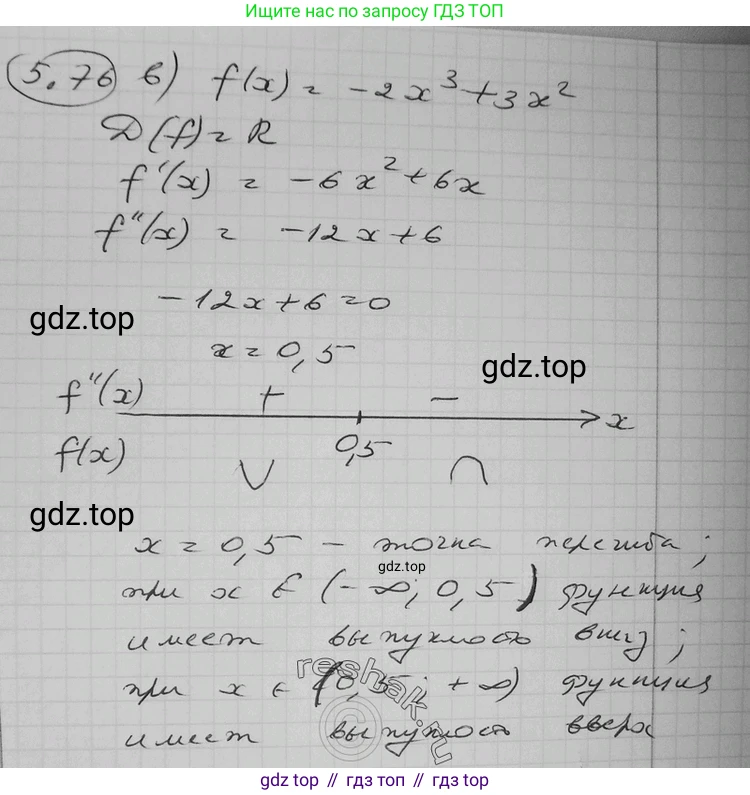 Ищите нас по запросу ГДЗ ТОП
5.76 в) f(x) = -2x³+3x²
D(f) = R
f'(x) = -6x²+6x
f''(x) = -12x+6
-12x+6=0
gdz.top
x = 0,5
gdz.top
f''(x) + - x
0,5
f(x) ∪ ∩
gdz.top
x = 0,5 - точка перегиба;
gdz.top
при x ∈ (-∞; 0,5) функция
имеет выпуклость вниз;
при x ∈ (0,5; +∞) функция
имеет выпуклость вверх
reshak.ru
©
gdz top // гдз топ // gdz top